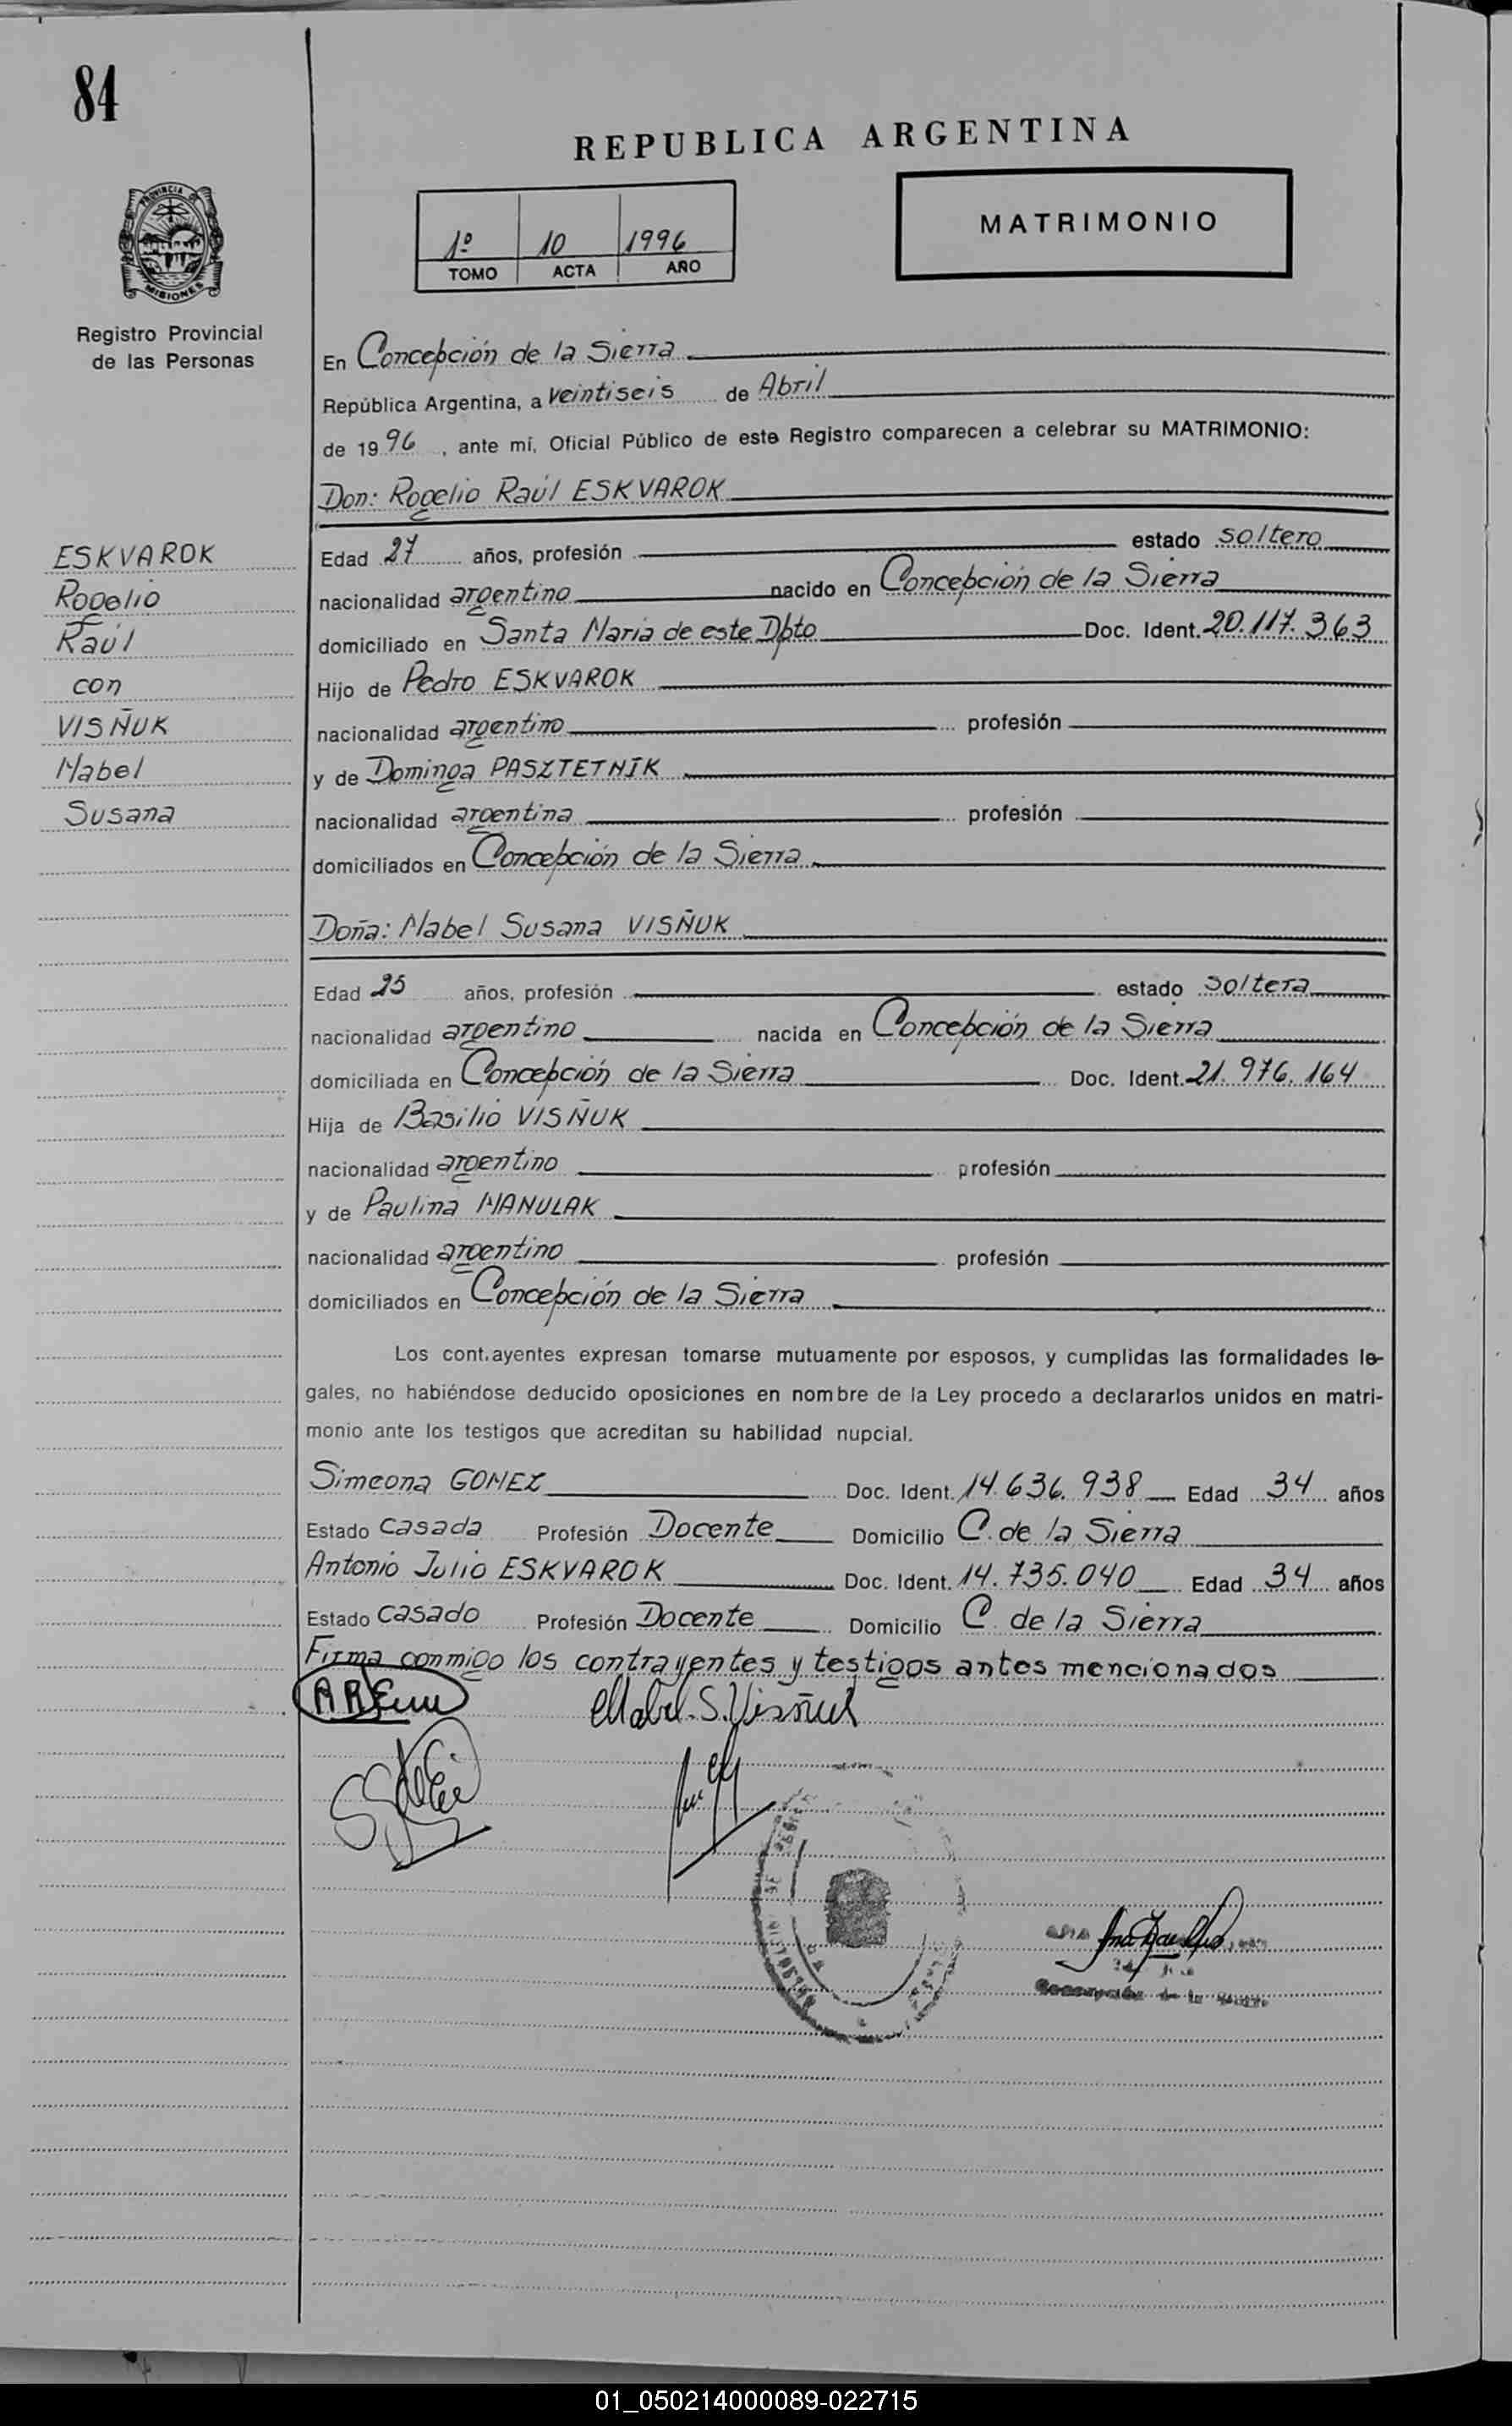 84
REPUBLICA ARGENTINA
PROVINCIA DE
MISIONES
Registro Provincial
de las Personas
1º 10 1996
TOMO ACTA AÑO
MATRIMONIO
En Concepción de la Sierra
República Argentina, a veintiseis de Abril
de 1996, ante mí, Oficial Público de este Registro comparecen a celebrar su MATRIMONIO:
Don: Rogelio Raúl ESKVAROK
ESKVAROK
Rogelio
Raúl
con
VISÑUK
Mabel
Susana
Edad 27 años, profesión estado soltero
nacionalidad argentino nacido en Concepción de la Sierra
domiciliado en Santa Maria de este Dpto Doc. Ident. 20.117.363
Hijo de Pedro ESKVAROK
nacionalidad argentino profesión
y de Dominga PASZTETNIK
nacionalidad argentina profesión
domiciliados en Concepción de la Sierra
Doña: Mabel Susana VISÑUK
Edad 25 años, profesión estado soltera
nacionalidad argentino nacida en Concepción de la Sierra
domiciliada en Concepción de la Sierra Doc. Ident. 21.976.164
Hija de Basilio VISÑUK
nacionalidad argentino profesión
y de Paulina MANULAK
nacionalidad argentino profesión
domiciliados en Concepción de la Sierra
Los contrayentes expresan tomarse mutuamente por esposos, y cumplidas las formalidades le-
gales, no habiéndose deducido oposiciones en nombre de la Ley procedo a declararlos unidos en matri-
monio ante los testigos que acreditan su habilidad nupcial.
Simeona GOMEZ Doc. Ident. 14.636.938 Edad 34 años
Estado Casada Profesión Docente Domicilio C. de la Sierra
Antonio Julio ESKVAROK Doc. Ident. 14.735.040 Edad 34 años
Estado Casado Profesión Docente Domicilio C. de la Sierra
Firma conmigo los contrayentes y testigos antes mencionados
Mabel S. Visñuk
Concepción de la Sierra
01_050214000089-022715